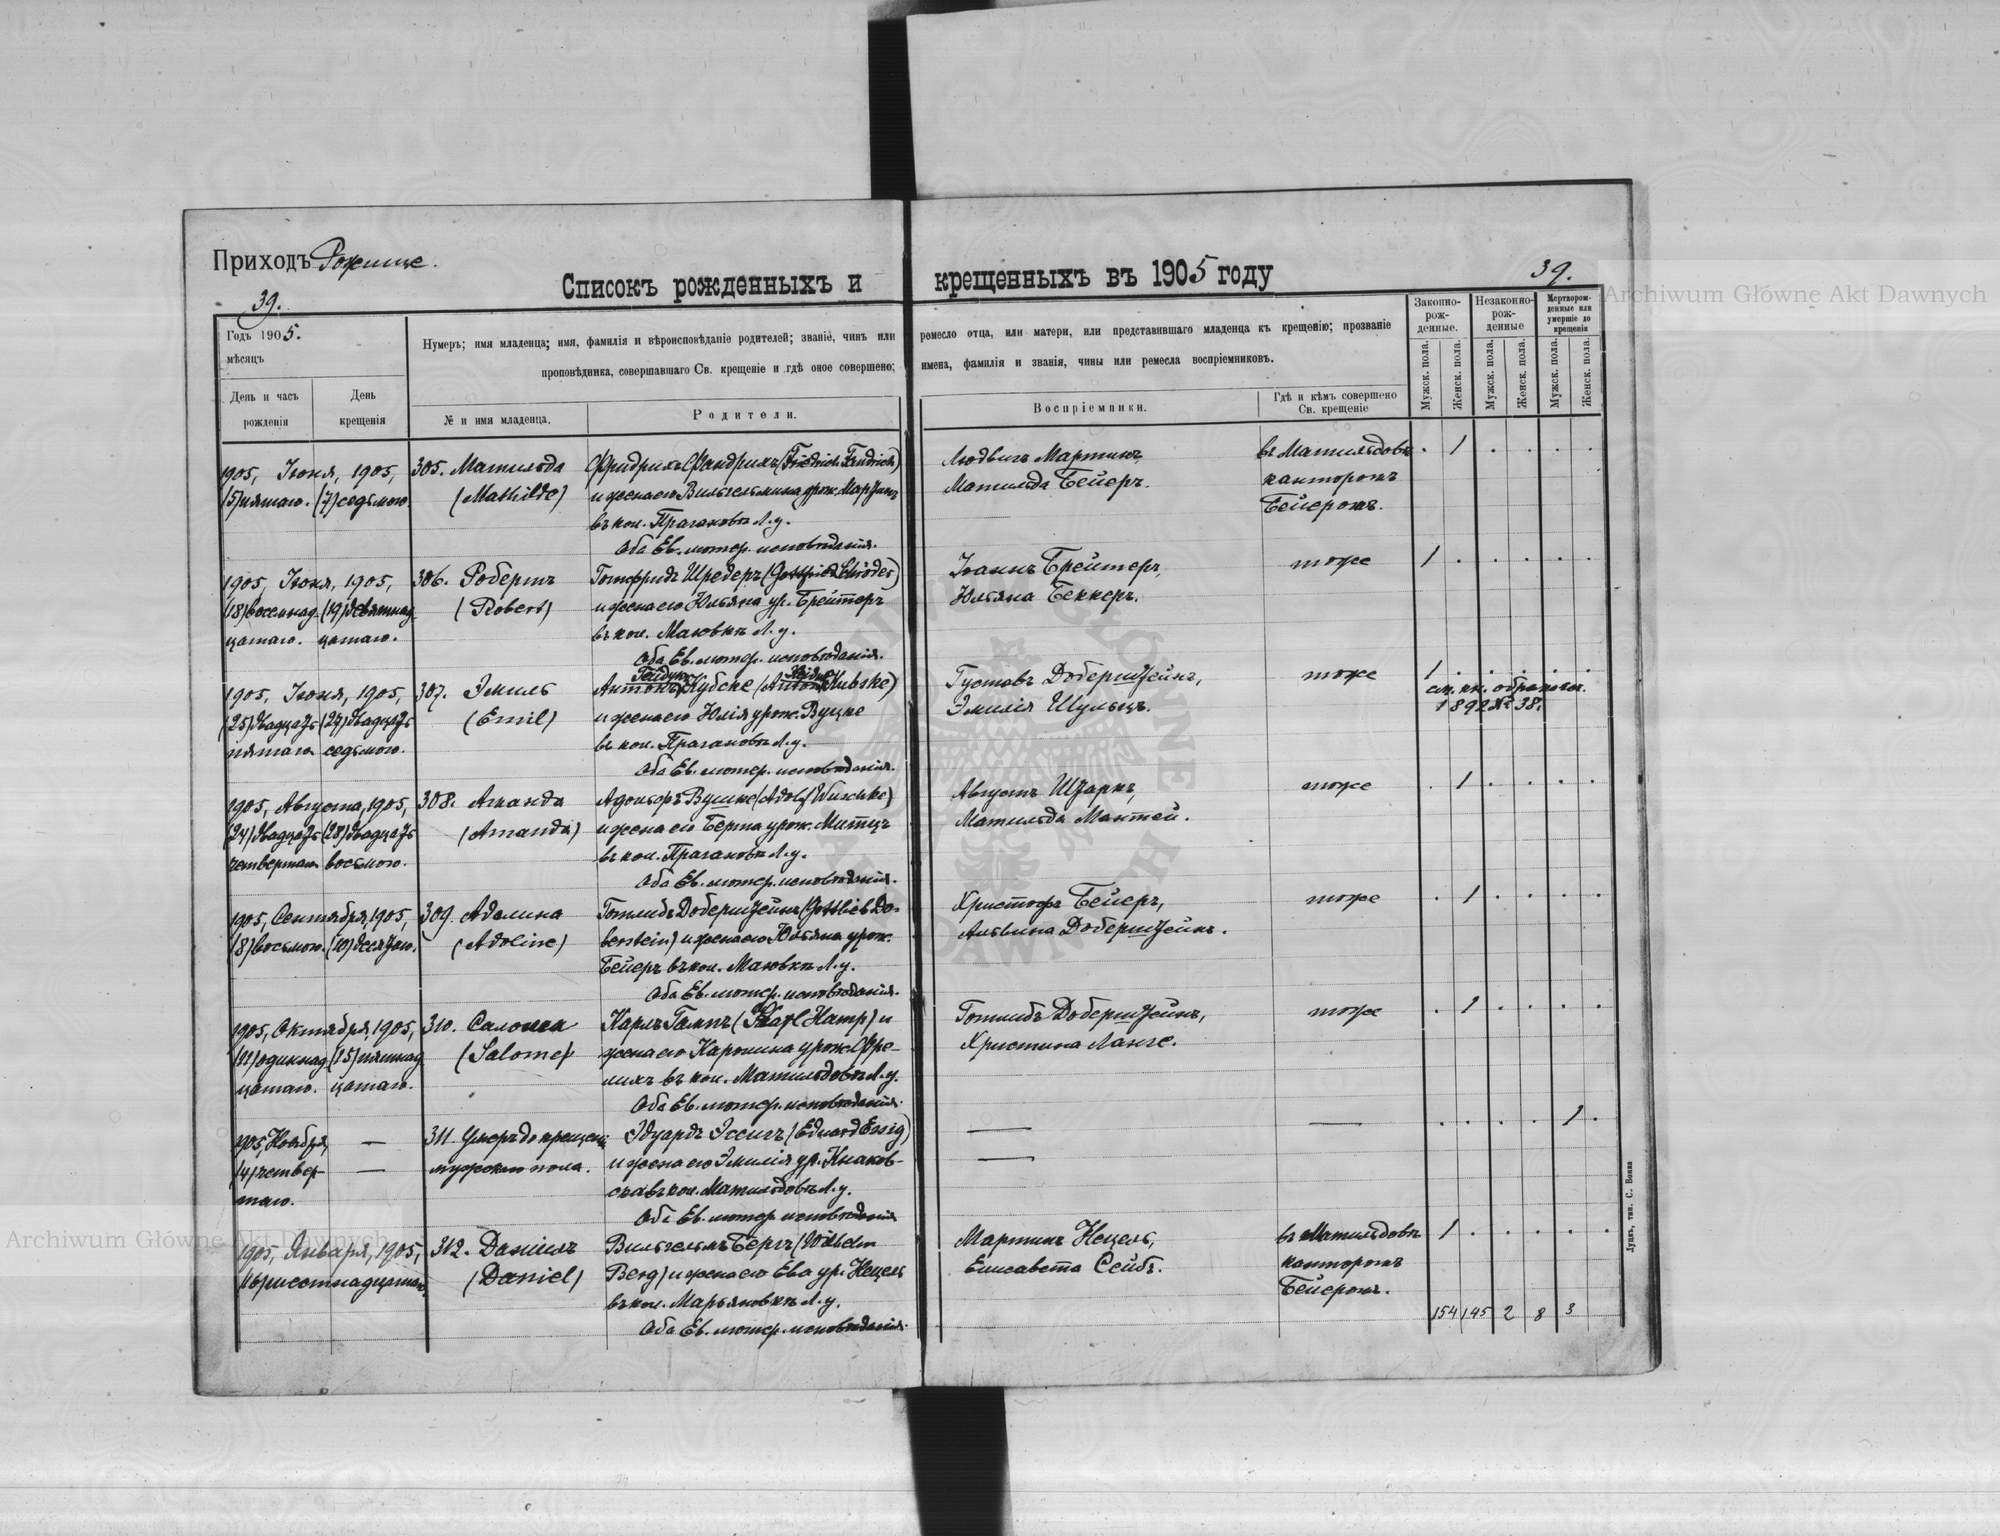 Приходъ Рожище.
39.
39.
Списокъ рожденныхъ и крещенныхъ въ 1905 году
Archiwum Główne Akt Dawnych
Годъ 1905.
мѣсяцъ
День и часъ рожденія
День крещенія
Нумеръ; имя младенца; имя, фамилія и вѣроисповѣданіе родителей; званіе, чинъ или ремесло отца, или матери, или представившаго младенца къ крещенію; прозваніе
проповѣдника, совершавшаго Св. крещеніе и гдѣ оное совершено; имена, фамилія и званія, чины или ремесла воспріемниковъ.
№ и имя младенца.
Родители.
Воспріемники.
Гдѣ и кѣмъ совершено Св. крещеніе
Законно-рож-денные.
Незаконно-рож-денные
Мертворож-денные или умершіе до крещенія
Мужск. пола.
Женск. пола.
Мужск. пола.
Женск. пола.
Мужск. пола.
Женск. пола.
1905, Іюня, 1905,
(5) пятаго. (7) седьмого.
305. Матильда
(Mathilde)
Фридрихъ Фандрихъ (Friedrich Fandrich)
и жена его Вильгельмина урож. Мартинъ
въ кол. Прагановкѣ Л. у.
Оба Ев. лютер. исповѣданія.
Людвигъ Мартинъ,
Матильда Бейеръ.
въ Матильдовкѣ
канторомъ
Бейеромъ.
. 1 . . . .
1905, Іюня, 1905,
(18) восемнад- (19) девятнад-
цатаго. цатаго.
306. Робертъ
(Robert)
Готфридъ Шредеръ (Gottfried Schröder)
и жена его Юльяна ур. Брейтеръ
въ кол. Маювкѣ Л. у.
Оба Ев. лютер. исповѣданія.
Іоаннъ Брейтеръ,
Юльяна Беккеръ.
тоже
1 . . . . .
1905, Іюня, 1905,
(25) двадцать (27) двадцать
пятаго седьмого.
307. Эмиль
(Emil)
Антонъ Кубске (Anton Kubske)
и жена его Юлія урож. Вуцке
въ кол. Прагановкѣ Л. у.
Оба Ев. лютер. исповѣданія.
Густавъ Доберштейнъ,
Эмилія Шульцъ.
тоже
1 . . . . .
1892 № 38.
1905, Августа, 1905,
(24) двадцать (28) двадцать
четвертаго восьмого.
308. Аманда
(Amanda)
Адольфъ Вушке (Adolf Wuschke)
и жена его Берта урож. Митцъ
въ кол. Прагановкѣ Л. у.
Оба Ев. лютер. исповѣданія.
Августъ Штаркъ,
Матильда Мантей.
тоже
. 1 . . . .
1905, Сентября, 1905,
(8) восьмого. (10) десятаго.
309. Аделина
(Adeline)
Готлибъ Доберштейнъ (Gottlieb Do-
berstein) и жена его Юльяна урож.
Бейеръ въ кол. Маювкѣ Л. у.
Оба Ев. лютер. исповѣданія.
Христофъ Бейеръ,
Альвина Доберштейнъ.
тоже
. 1 . . . .
1905, Октября, 1905,
(11) одиннад- (15) пятнад-
цатаго. цатаго.
310. Саломея
(Salome)
Карлъ Гампъ (Karl Hamp) и
жена его Каролина урож. Фре-
лихъ въ кол. Матильдовкѣ Л. у.
Оба Ев. лютер. исповѣданія.
Готлибъ Доберштейнъ,
Христина Ланге.
тоже
. 1 . . . .
1905, Ноября, —
(4) четвер- —
таго.
311. Умеръ до крещенія
мужского пола.
Эдуардъ Эссигъ (Eduard Essig)
и жена его Эмилія ур. Кнаков-
ска въ кол. Матильдовкѣ Л. у.
Оба Ев. лютер. исповѣданія
—
—
—
. . . . 1 .
1905, Января, 1905,
(16) шестнадцатаго.
312. Даніилъ
(Daniel)
Вильгельмъ Бергъ (Wilhelm
Berg) и жена его Ева ур. Нецель
въ кол. Марьяновкѣ Л. у.
Оба Ев. лютер. исповѣданія.
Мартинъ Нецель,
Елисавета Сейбъ.
въ Матильдовкѣ
канторомъ
Бейеромъ.
1 . . . . .
154 145 2 8 3
Луцкъ, тип. С. Бокка
Archiwum Główne Akt Dawnych